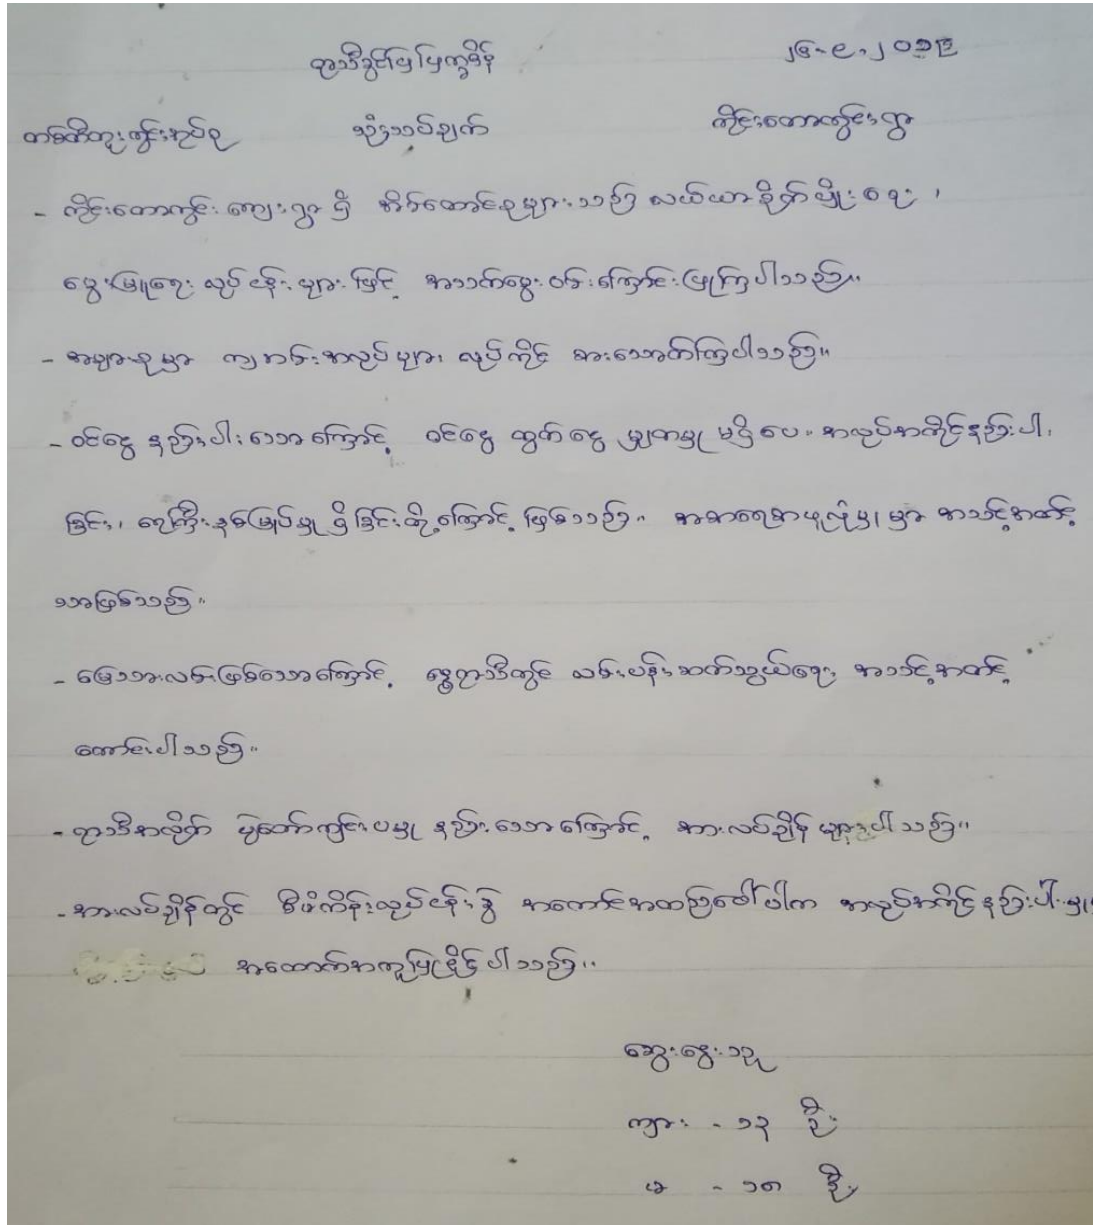 ရာသီခွင်ပြပြက္ခဒိန် ၂၆-၉-၂၀၁၉
တစ်ထီတူးတွင်းအုပ်စု သုံးသပ်ချက် ကိုင်းတောတွင်းရွာ
- ကိုင်းတောတွင်း ကျေးရွာ ရှိ အိမ်ထောင်စုများသည် လယ်ယာစိုက်ပျိုးရေး ၊
မွေးမြူရေး လုပ်ငန်းများဖြင့် အသက်မွေးဝမ်းကြောင်းပြုကြပါသည်။
- အများစုမှာ ကျဘမ်းအလုပ်များ လုပ်ကိုင် စားသောက်ကြပါသည်။
- ဝင်ငွေ နည်းပါးသောကြောင့် ဝင်ငွေ ထွက်ငွေ မျှတမှု မရှိပေ။ အလုပ်အကိုင်နည်းပါး
ခြင်း၊ ရေကြီးနစ်မြုပ်မှု ရှိခြင်းတို့ကြောင့် ဖြစ်သည်။ အစာရေစာဖူလုံမှု မှာ အသင့်အတင့်
သာဖြစ်သည်။
- မြေသားလမ်းဖြစ်သောကြောင့် မွေရာသီတွင် လမ်းပန်းဆက်သွယ်ရေး အသင့်အတင့်
ကောင်းပါသည်။
- ရာသီအလိုက် ပွဲတော်ကျင်းပမှု နည်းသောကြောင့် အားလပ်ချိန် များပါသည်။
- အားလပ်ချိန်တွင် စီမံကိန်းလုပ်ငန်း၌ အကောင်အထည်ဖေါ်ပါက အလုပ်အကိုင်နည်းပါးမှု
အထောက်အကူပြုနိုင်ပါသည်။
ဆွေးနွေးသူ
ကျား - ၁၃ ဦး
မ - ၁၈ ဦး